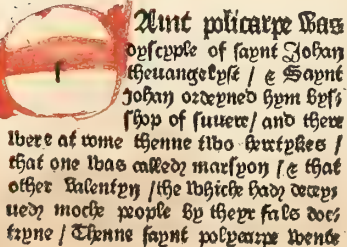 SAint policarpe was
dyscyple of saynt Johan
theuangelyst / & Saynt
Johan ordeyned hym bys-
shop of / and there
were at rome thenne two heretykes /
that one was called marsyon / & that
other Valentyn / the whiche had decey-
ued moche people by theyr fals doc-
tryne / Thenne saynt polycarpe wente